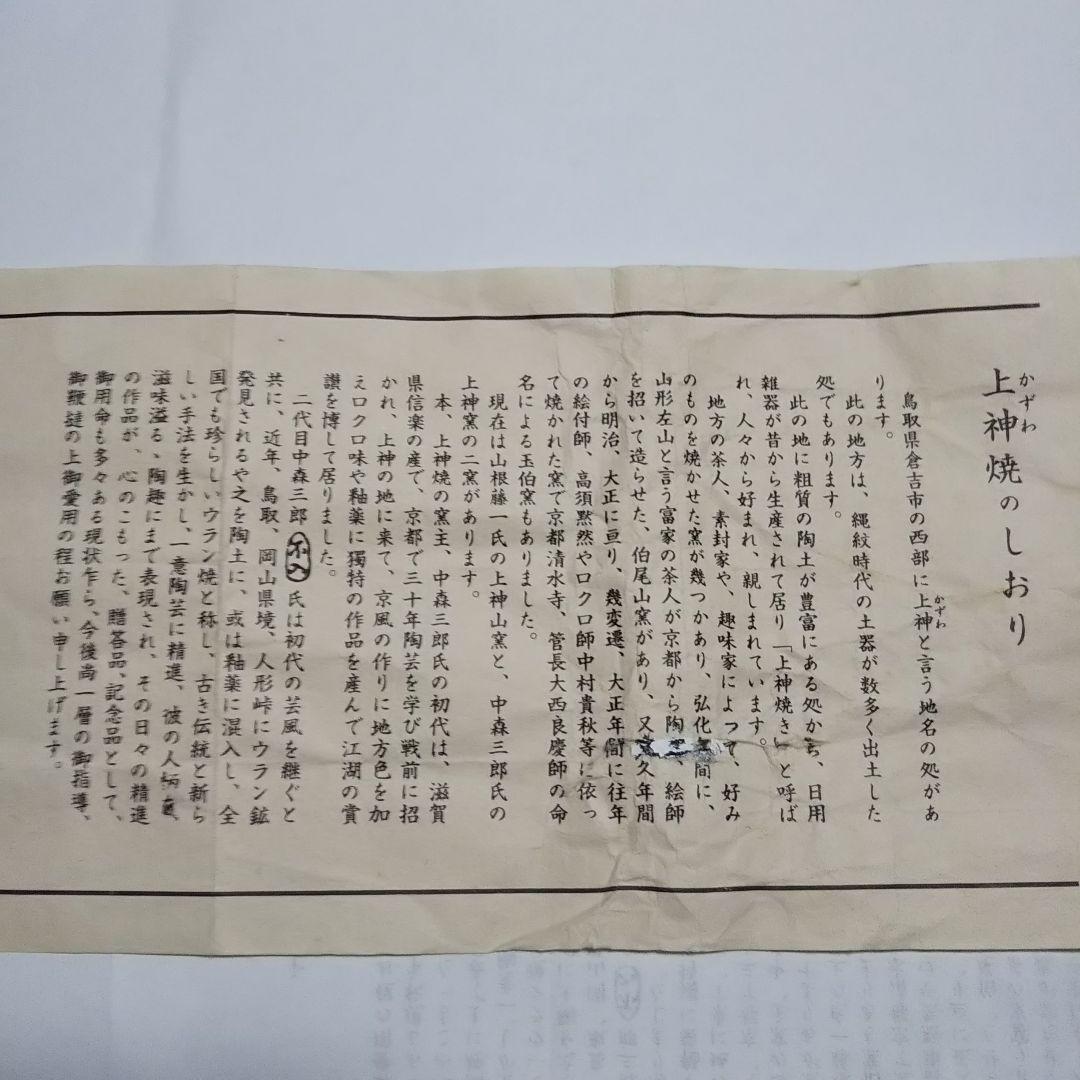 上神焼のしおり
かずわ
鳥取県倉吉市の西部に上神と言う地名の処があ
かずわ
ります。
此の地方は、縄紋時代の土器が数多く出土した
処でもあります。
此の地に粗質の陶土が豊富にある処から、日用
雑器が昔から生産されて居り「上神焼き」と呼ば
れ、人々から好まれ、親しまれています。
地方の茶人、素封家や、趣味家によって、好み
のものを焼かせた窯が幾つかあり、弘化年間に、
山形左山と言う富家の茶人が京都から陶工、絵師
を招いて造らせた、伯尾山窯があり、又久年間
から明治、大正に亘り、幾変遷、大正年間に往年
の絵付師、高須黙然やロクロ師中村貴秋等に依っ
て焼かれた窯で京都清水寺、管長大西良慶師の命
名による玉伯窯もありました。
現在は山根藤一氏の上神山窯と、中森三郎氏の
上神窯の二窯があります。
本、上神焼の窯主、中森三郎氏の初代は、滋賀
県信楽の産で、京都で三十年陶芸を学び戦前に招
かれ、上神の地に来て、京風の作りに地方色を加
えロクロ味や釉薬に獨特の作品を産んで江湖の賞
讃を博して居りました。
二代目中森三郎氏は初代の芸風を継ぐと
共に、近年、鳥取、岡山県境、人形峠にウラン鉱
発見されるや之を陶土に、或は釉薬に混入し、全
国でも珍らしいウラン焼と称し、古き伝統と新ら
しい手法を生かし、一意陶芸に精進、彼の人柄
滋味溢るゝ陶趣にまで表現され、その日々の精進
の作品が、心のこもった、贈答品、記念品として、
御用命も多々ある現状乍ら、今後尚一層の御指導、
御鞭撻の上御愛用の程お願い申し上げます。